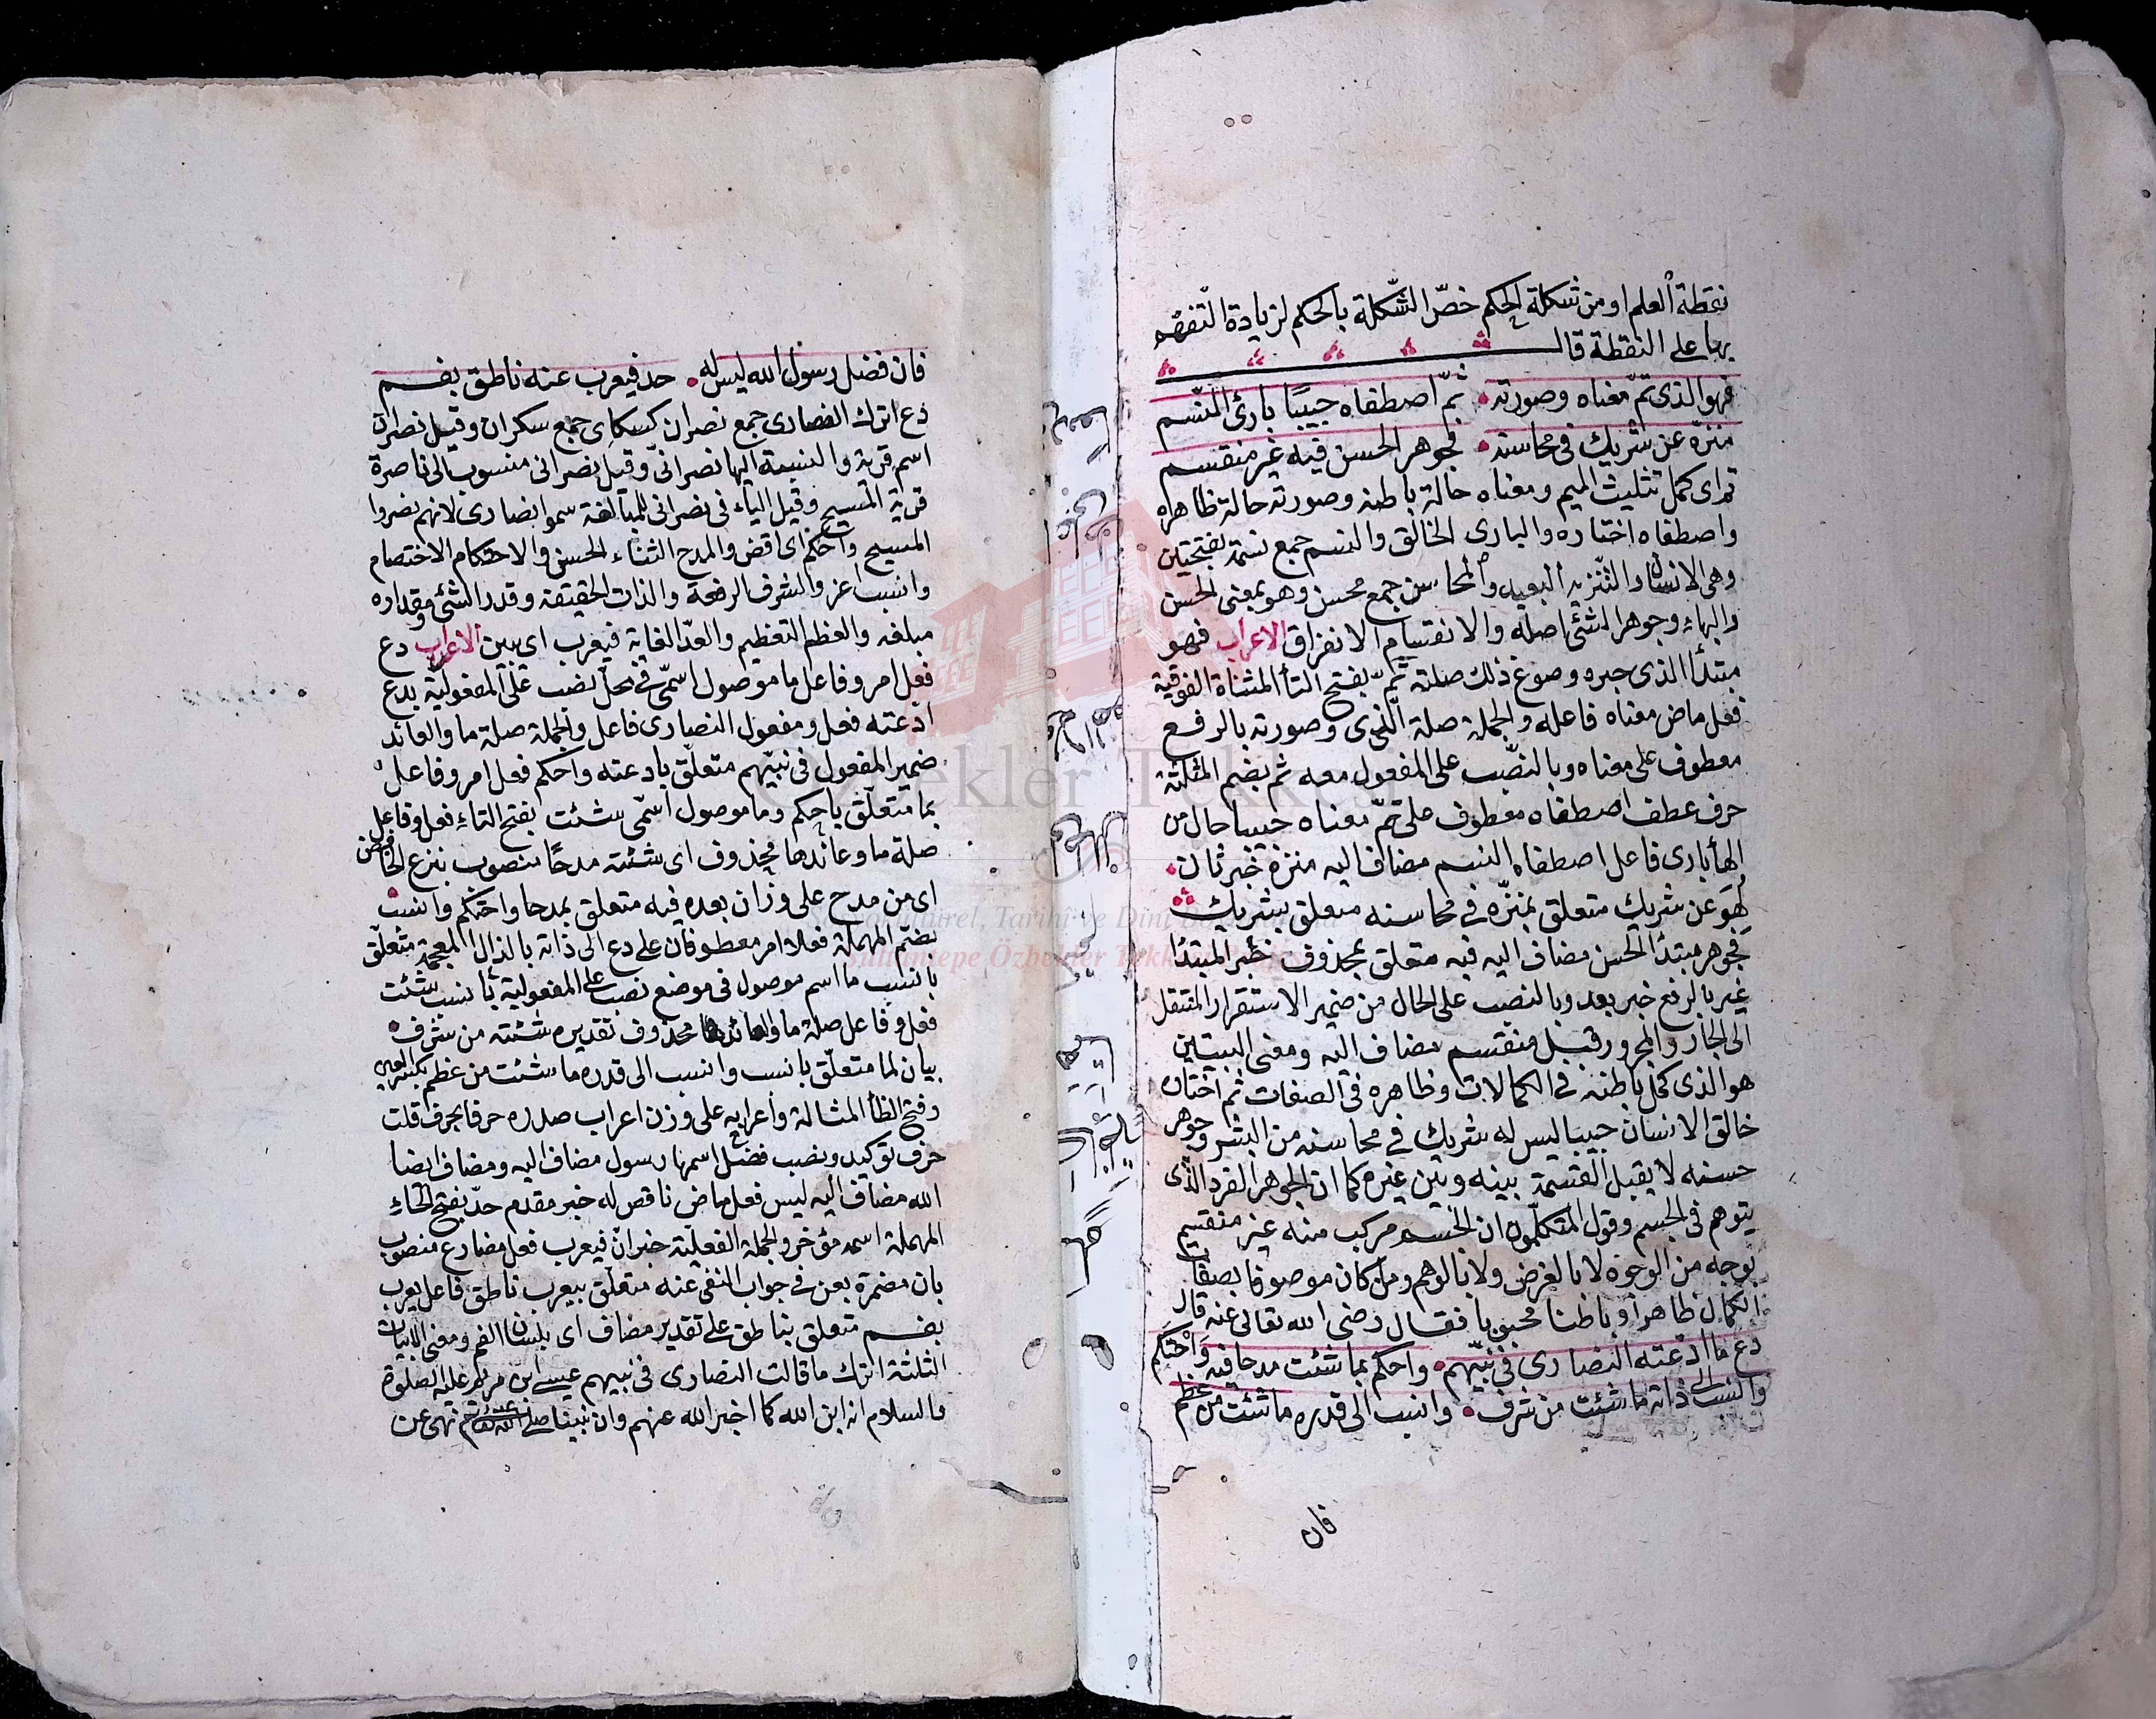 نقطة العلم او من شكلة الحكم خصّ الشّكلة بالحكم لزيادة التّفهّم
بها على النقطة قال
فهو الذى تمّ معناه وصورته ثمّ اصطفاه حبيبًا بارئ النّسم
منزّه عن شريك فى محاسنه فجوهر الحسن فيه غير منقسم
تم اى كمل تثليث الميم ومعناه حالة باطنه وصورته حالة ظاهره
واصطفاه اختاره والبارى الخالق والنسم جمع نسمة بفتحتين
وهى الانسان والتّنزيه البعيد والمحاسن جمع محسن وهو بمعنى الحسن
والبهاء وجوهر الشئ اصله والانقسام الانفراق الاعراب فهو
مبتدأ الذى خبره وصوغ ذلك صلته تمّ بفتح التأ المثناة الفوقية
فعل ماض معناه فاعله والجملة صلة الّذى وصورته بالرفع
معطوف على معناه وبالنّصب على المفعول معه ثم بضم المثلثة
حرف عطف اصطفاه معطوف على تمّ معناه حبيبا حال من
الهأ بارى فاعل اصطفاه النسم مضاف اليه منزه خبر ثان
لهو عن شريك متعلق بمنزّه فى محاسنه متعلق بشريك
فجوهر مبتدأ الحسن مضاف اليه فيه متعلق بمحذوف خبر المبتدأ
غير بالرفع خبر بعد وبالنصب على الحال من ضمير الاستقرار المنتقل
الى الجار والمجرور قبل منقسم مضاف اليه ومعنى البيتين
هو الذى كمل باطنه فى الكمالات وظاهره فى الصفات ثم اختاره
خالق الانسان حبيبا ليس له شريك فى محاسنه من البشر وجوهر
حسنه لا يقبل القسمة بينه وبين غيره كما ان الجوهر الفرد الّذى
يتوهم فى الجسم وقول المتكلّمون ان الجسم مركب منه غير منقسم
بوجه من الوجوه لا بالغرض ولا بالوهم ومن كان موصوفا بصفات
الكمال ظاهرا وباطنا محبوبا فقال رضى الله تعالى عنه قال
دع ما ادّعته النصارى فى نبيّهم واحكم بما شئت مدحا فيه واحتكم
وانسب الى ذاته ما شئت من شرف وانسب الى قدره ما شئت من عظم
فان
فان فضل رسول الله ليس له حد فيعرب عنه ناطق بفم
دع اترك النصارى جمع نصران كسكاى جمع سكران وقيل نصران
اسم قرية والنسبة اليها نصرانىّ وقيل نصرانى منسوب الى ناصرة
قرية المسيح وقيل الياء فى نصرانى للمبالغة سموا نصارى لانهم نصروا
المسيح واحكم اى اقض والمدح الثناء الحسن والاحتكام الاختصام
وانسب اعز والشرف الرفعة والذات الحقيقة وقدر الشئ مقداره
مبلغه والعظم التعظيم والعدّ الغاية فيعرب اى يبين الاعراب دع
فعل امر وفاعل ما موصول اسمىّ فى محل نصب على المفعولية بدع
ادّعته فعل ومفعول النصارى فاعل والجملة صلة ما والعائد
ضمير المفعول فى نبيّهم متعلّق بادعته واحكم فعل امر وفاعل
بما متعلّق باحكم وما موصول اسمّى شئت بفتح التاء فعل وفاعل
صلة ما وعائدها محذوف اى شئته مدحًا منصوب بنزع الخافض
اى من مدح على وزان بعده فيه متعلق بمدحا واحتكم وانسب
بضمّ المهملة فعلا امر معطوفان على دع الى ذاته بالذال المعجمة متعلّق
بانسب ما اسم موصول فى موضع نصب على المفعولية بانسب شئت
فعل وفاعل صلة ما والعائد محذوف تقديره شئته من شرف
بيان لما متعلّق بانسب وانسب الى قدره ما شئت من عظم بكسر العين
وفتح الظأ المشالة واعرابه على وزن اعراب صدره حرفا بحرف قلت
حرف توكيد ونصب فضل اسمها رسول مضاف اليه ومضاف ايضا
الله مضاف اليه ليس فعل ماض ناقص له خبر مقدم حدّ بفتح الحاء
المهملة اسمه مؤخر والجملة الفعلية خبر ان فيعرب فعل مضارع منصوب
بان مضمرة بعن فى جواب النفى عنه متعلّق بيعرب ناطق فاعل يعرب
بفم متعلق بناطق على تقدير مضاف اى بلسان الفم ومعنى الابيات
الثلثة اترك ما قالت النصارى فى نبيهم عيسى ابن مريم عليه الصلوة
والسلام انه ابن الله كما اخبر الله عنهم وان نبينا صلى الله عليه وسلم نهى عن